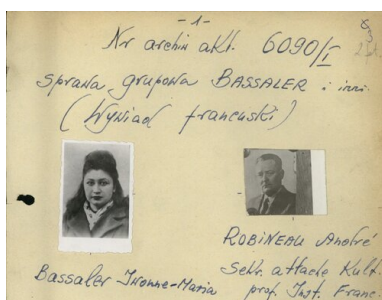 - 1 -
Nr archiw akt. 6090/I
sprawa grupowa BASSALER i inni.
(Wywiad francuski)
Bassaler Ivonne-Maria
ROBINEAU André
Sekr. attaché Kult.
prof. Inst. Franc